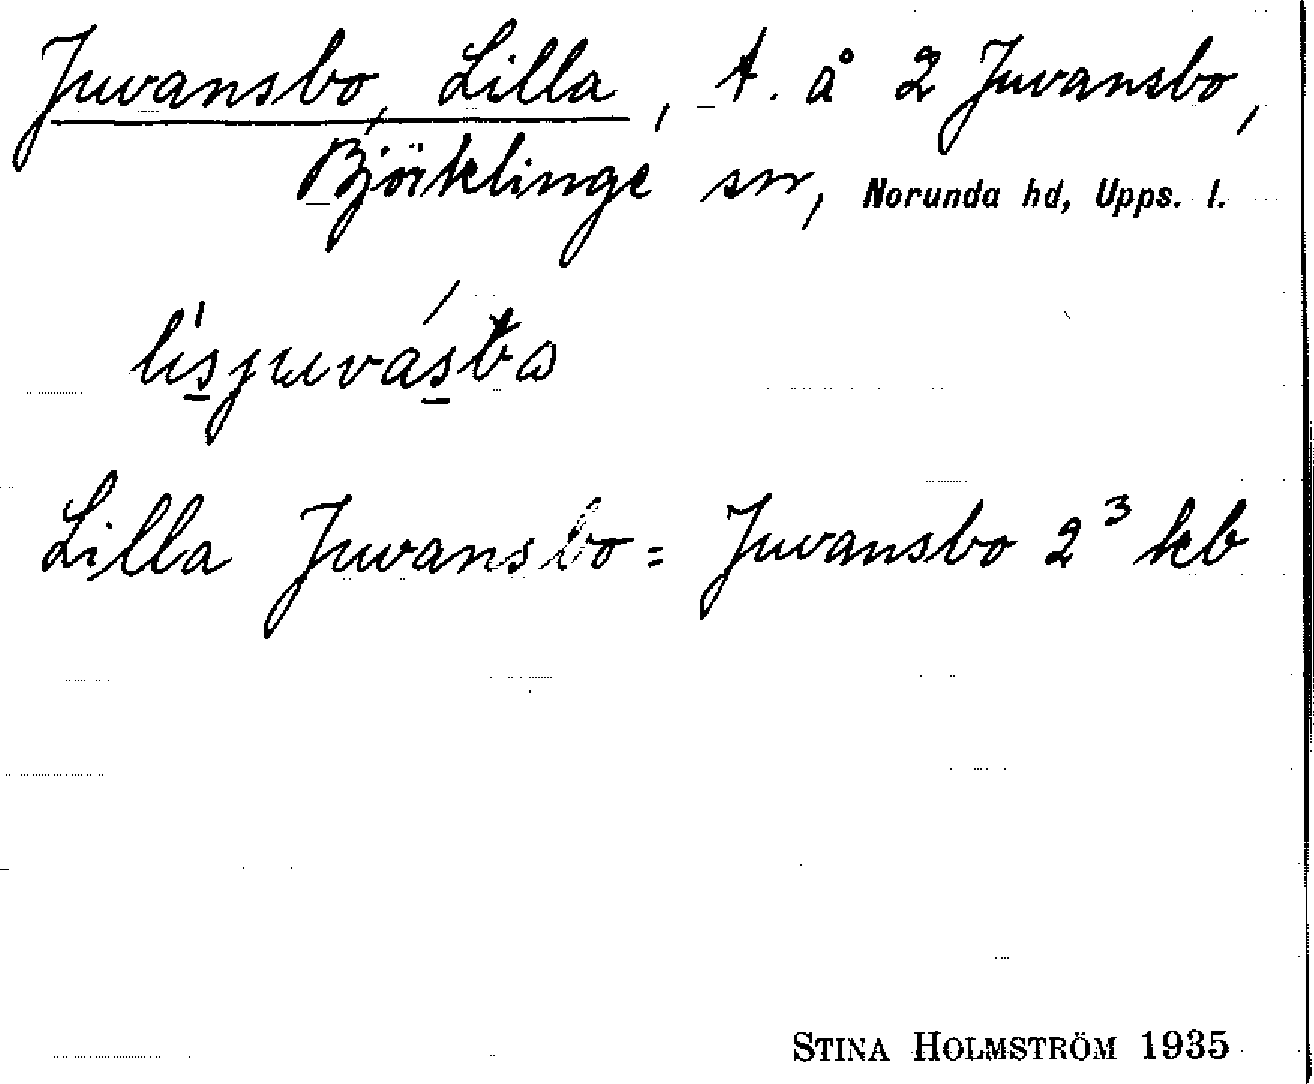 Juvansbo, Lilla, t. å 2 Juvansbo,
Björklinge sn, Norunda hd, Upps. l.
Lilla Juvansbo = Juvansbo 2³ kb
STINA HOLMSTRÖM 1935